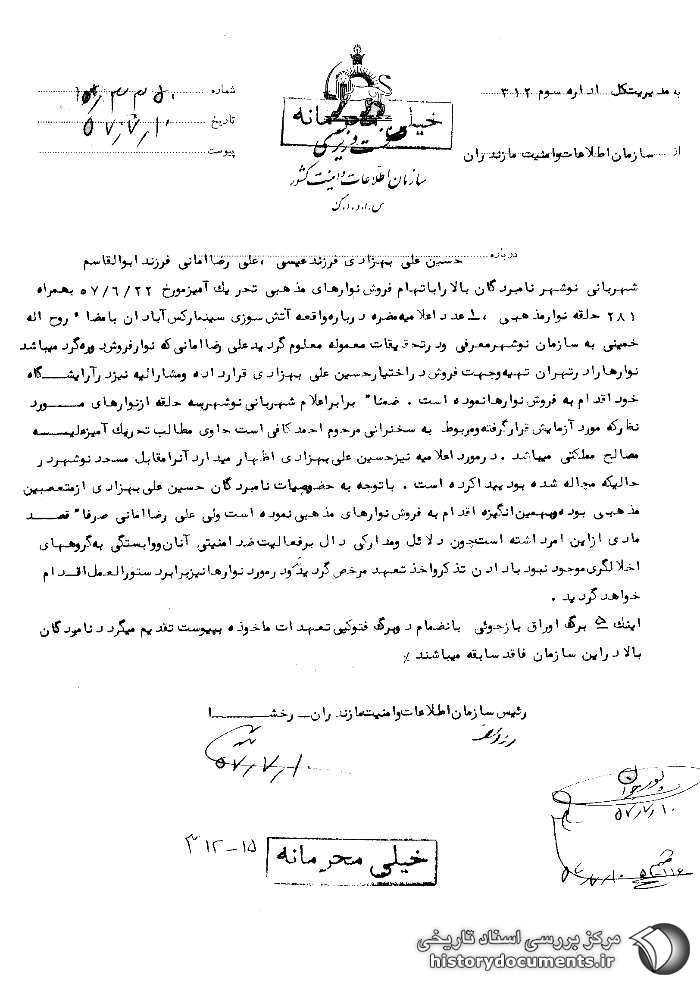 به مدیریت کل اداره سوم ۳۱۲
از سازمان اطلاعات و امنیت مازندران
خیلی محرمانه
نخست وزیری
سازمان اطلاعات و امنیت کشور
س.ا.و.ا.ک
شماره
تاریخ ۵۷/۷/۱۰
پیوست
درباره حسین علی بهزادی فرزند عیسی ، علی رضا امانی فرزند ابوالقاسم
شهربانی نوشهر نامبردگان بالا را باتهام فروش نوارهای مذهبی تحریک آمیز مورخ ۵۷/۶/۲۲ بهمراه
۲۸۱ حلقه نوار مذهبی ، عدد اعلامیه مضره درباره واقعه آتش سوزی سینما رکس آبادان بامضا" روح اله
خمینی به سازمان نوشهر معرفی و در تحقیقات معموله معلوم گردید علی رضا امانی که نوار فروش دوره گرد میباشد
نوارها را در تهران تهیه و جهت فروش در اختیار حسین علی بهزادی قرار داده و مشارالیه نیز در آرایشگاه
خود اقدام به فروش نوارها نموده است . ضمنا" برابر اعلام شهربانی نوشهر سه حلقه از نوارهای مـــورد
نظر که مورد آزمایش قرار گرفته و مربوط به سخنرانی مرحوم احمد کافی است حاوی مطالب تحریک آمیز علیـــه
مصالح مملکتی میباشد . در مورد اعلامیه نیز حسین علی بهزادی اظهار میدارد آنرا مقابل مسجد نوشهر در
حالیکه مچاله شده بود پیدا کرده است . با توجه به خصوصیات نامبردگان حسین علی بهزادی از متعصبین
مذهبی بوده و بهمین انگیزه اقدام به فروش نوارهای مذهبی نموده است ولی علی رضا امانی صرفا" قصـــد
مادی از این امر داشته است چون دلائل و مدارکی دال بر فعالیت ضد امنیتی آنان و وابستگی به گروههای
اخلالگری موجود نبود با دادن تذکر و اخذ تعهد مرخص گردیدند و در مورد نوارها نیز برابر دستورالعمل اقـدام
خواهد گردید .
اینک ۵ برگ اوراق بازجوئی بانضمام دو برگ فتوکپی تعهدات ماخوذه بپیوست تقدیم میگردد نامبردگان
بالا در این سازمان فاقد سابقه میباشند ٪
رئیس سازمان اطلاعات و امنیت مازندران ـ رخشـــا
۵۷/۷/۱۰
۵۷/۷/۱۰
۳۱۲-۱۵
خیلی محرمانه
۵۷/۷/۱۰
مرکز بررسی اسناد تاریخی
historydocuments.ir